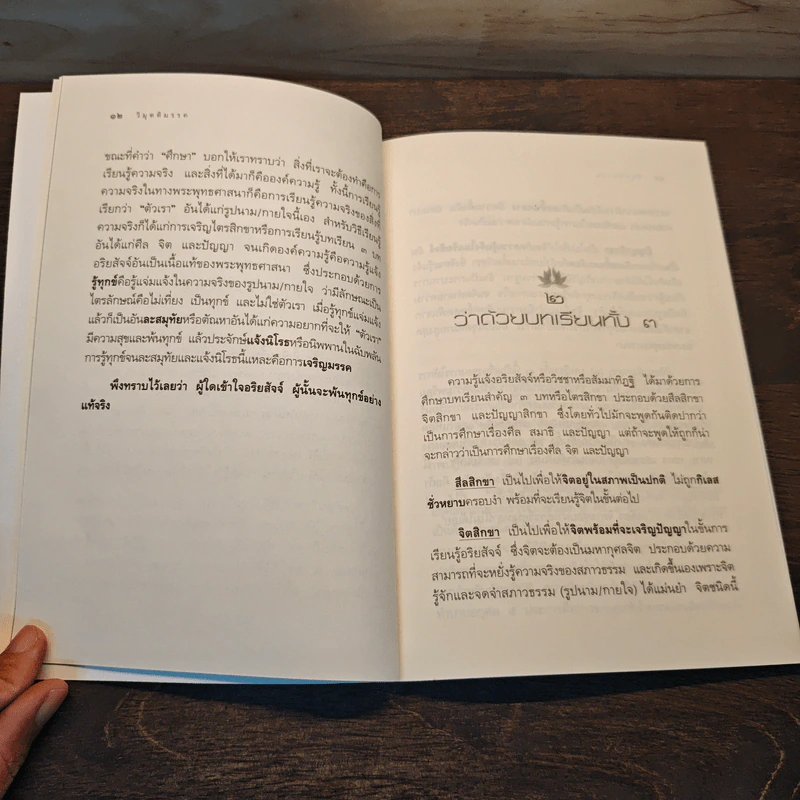 ๑๒ วิมุตติมรรค
ขณะที่คำว่า “ศึกษา” บอกให้เราทราบว่า สิ่งที่เราจะต้องทำคือการ
เรียนรู้ความจริง และสิ่งที่ได้มาก็คือองค์ความรู้ ทั้งนี้การเรียนรู้
ความจริงในทางพระพุทธศาสนาก็คือการเรียนรู้ความจริงของสิ่งที่
เรียกว่า “ตัวเรา” อันได้แก่รูปนาม/กายใจนี้เอง สำหรับวิธีเรียนรู้
ความจริงก็ได้แก่การเจริญไตรสิกขาหรือการเรียนรู้บทเรียน ๓ บท
อันได้แก่ศีล จิต และปัญญา จนเกิดองค์ความรู้คือความรู้แจ้ง
อริยสัจจ์อันเป็นเนื้อแท้ของพระพุทธศาสนา ซึ่งประกอบด้วยการ
รู้ทุกข์คือรู้แจ่มแจ้งในความจริงของรูปนาม/กายใจ ว่ามีลักษณะเป็น
ไตรลักษณ์คือไม่เที่ยง เป็นทุกข์ และไม่ใช่ตัวเรา เมื่อรู้ทุกข์แจ่มแจ้ง
แล้วก็เป็นอันละสมุทัยหรือตัณหาอันได้แก่ความอยากที่จะให้ “ตัวเรา”
มีความสุขและพ้นทุกข์ แล้วประจักษ์แจ้งนิโรธหรือนิพพานในฉับพลัน
การรู้ทุกข์จนละสมุทัยและแจ้งนิโรธนี้แหละคือการเจริญมรรค
พึงทราบไว้เลยว่า ผู้ใดเข้าใจอริยสัจจ์ ผู้นั้นจะพ้นทุกข์อย่าง
แท้จริง
๒
ว่าด้วยบทเรียนทั้ง ๓
ความรู้แจ้งอริยสัจจ์หรือวิชชาหรือสัมมาทิฏฐิ ได้มาด้วยการ
ศึกษาบทเรียนสำคัญ ๓ บทหรือไตรสิกขา ประกอบด้วยสีลสิกขา
จิตสิกขา และปัญญาสิกขา ซึ่งโดยทั่วไปมักจะพูดกันติดปากว่า
เป็นการศึกษาเรื่องศีล สมาธิ และปัญญา แต่ถ้าจะพูดให้ถูกก็น่า
จะกล่าวว่าเป็นการศึกษาเรื่องศีล จิต และปัญญา
สีลสิกขา เป็นไปเพื่อให้จิตอยู่ในสภาพเป็นปกติ ไม่ถูกกิเลส
ชั่วหยาบครอบงำ พร้อมที่จะเรียนรู้จิตในขั้นต่อไป
จิตสิกขา เป็นไปเพื่อให้จิตพร้อมที่จะเจริญปัญญาในขั้นการ
เรียนรู้อริยสัจจ์ ซึ่งจิตจะต้องเป็นมหากุศลจิต ประกอบด้วยความ
สามารถที่จะหยั่งรู้ความจริงของสภาวธรรม และเกิดขึ้นเองเพราะจิต
รู้จักและจดจำสภาวธรรม (รูปนาม/กายใจ) ได้แม่นยำ จิตชนิดนี้